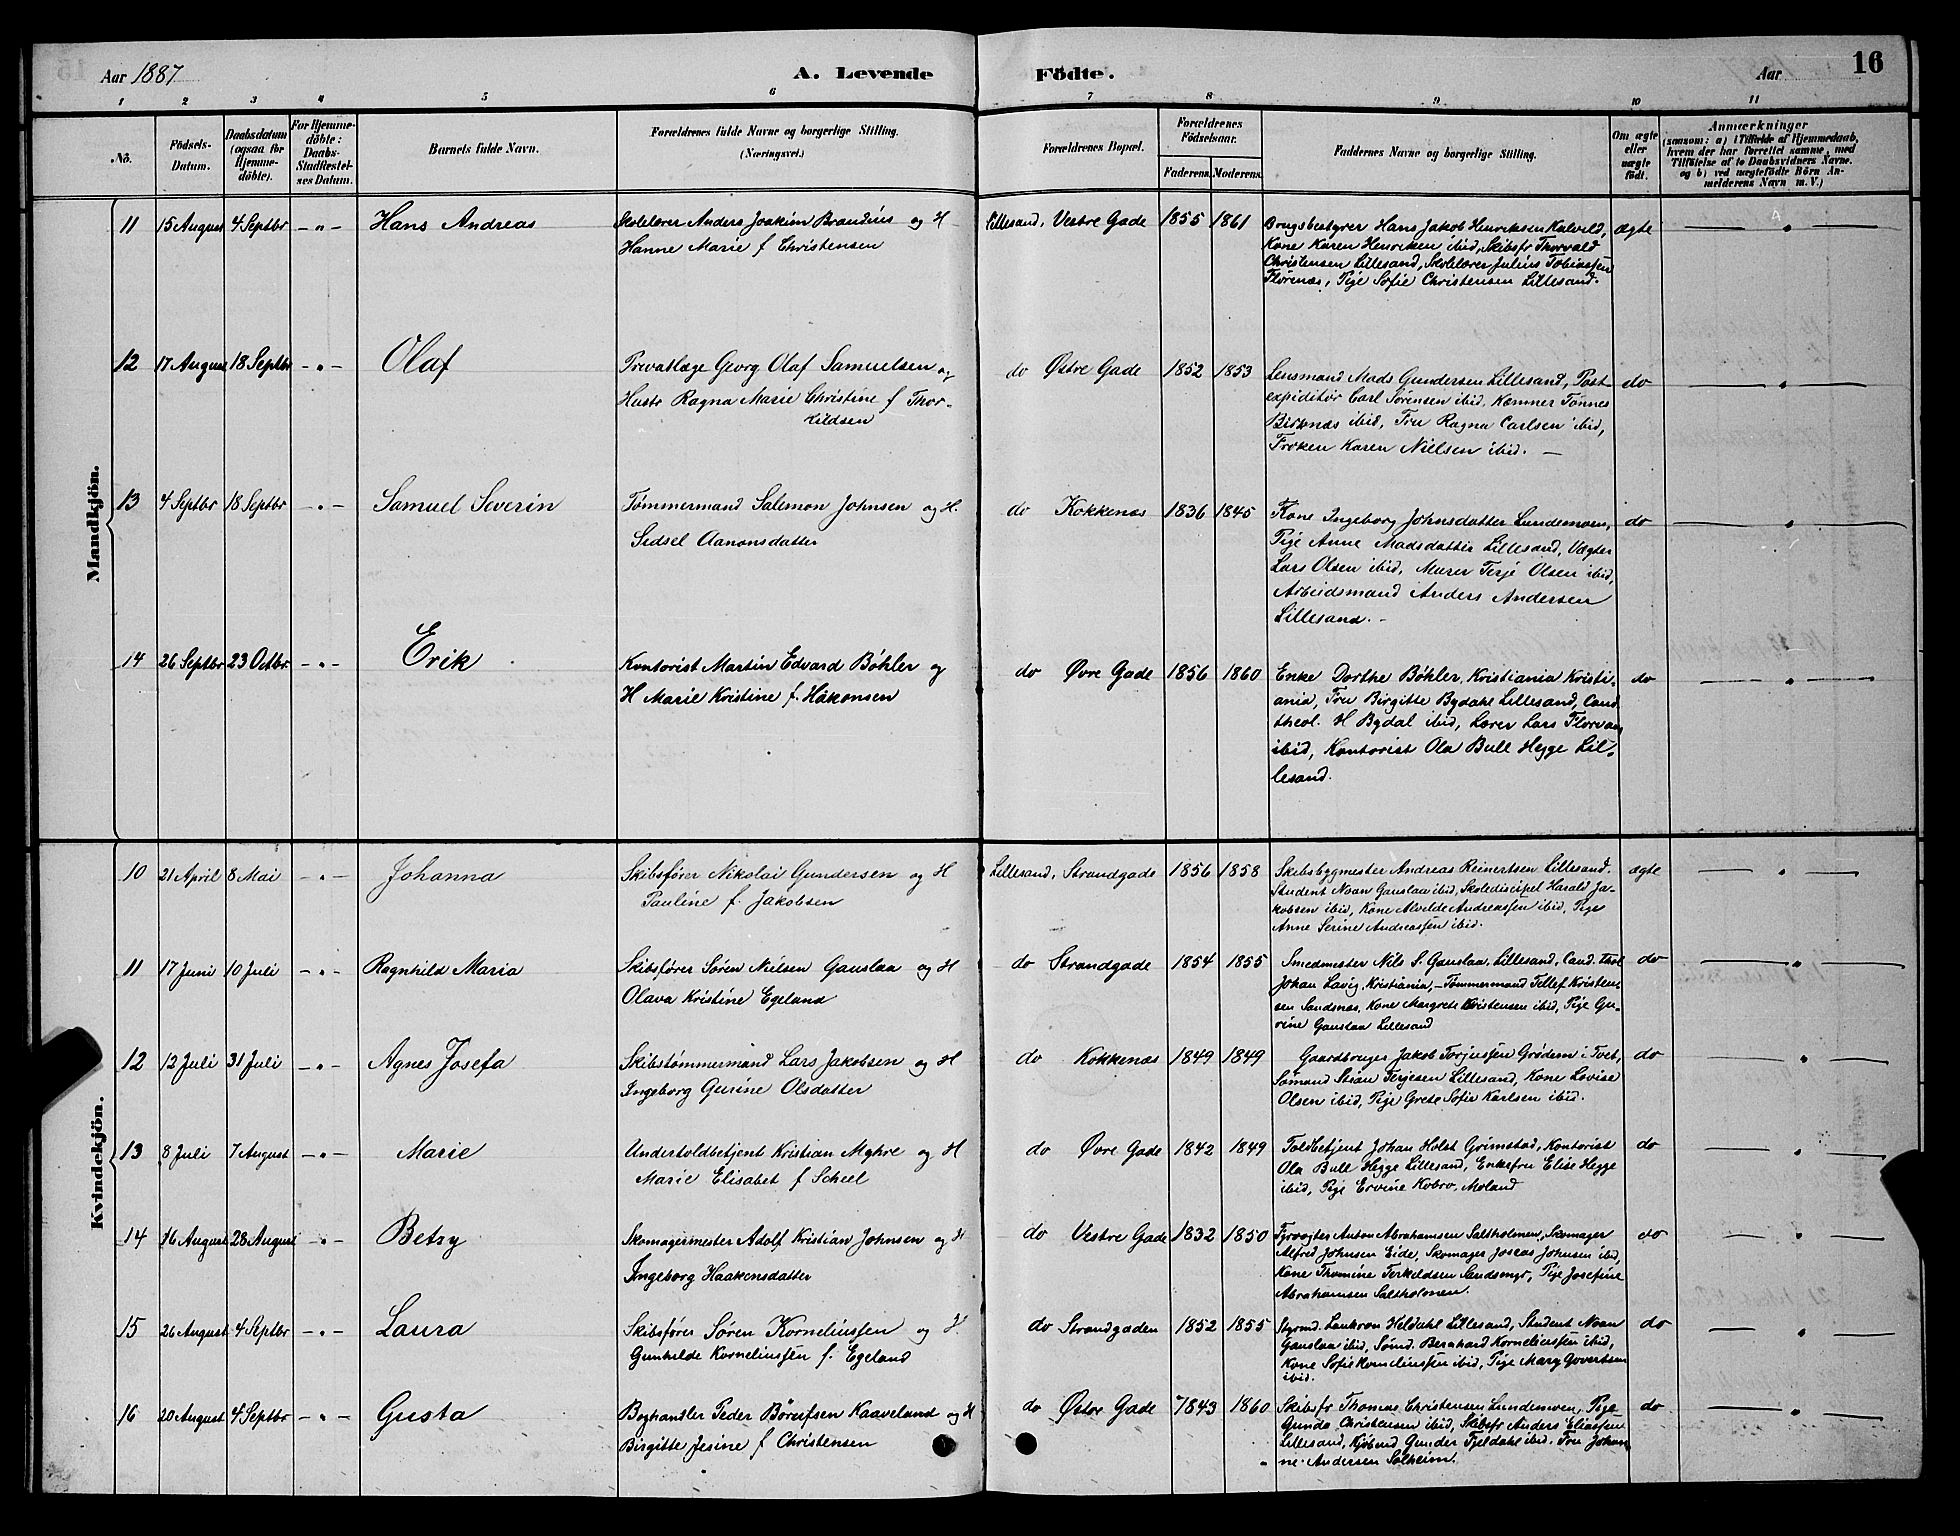 Aar 1887
A. Levende Födte.
Aar
16
1 2 3 4 5 6 7 8 9 10 11
No.
Födsels-Datum.
Daabsdatum (ogsaa for Hjemmedöbte).
For Hjemmedöbte: Daabs-Stadfestelses Datum.
Barnets fulde Navn.
Forældrenes fulde Navne og borgerlige Stilling. (Næringsvei.)
Forældrenes Bopæl.
Forældrenes Födselsaar.
Faderens. Moderens.
Faddernes Navne og borgerlige Stilling.
Om ægte eller uægte födt.
Anmærkninger
(saasom: a) i Tilfælde af Hjemmedaab, hvem der har forrettet samme, med Tilföielse af to Daabsvidners Navne. og b) ved uægtefödte Börn Anmelderens Navn m. V.)
Mandkjön.
11 15 August 4 Septbr - " - Hans Andreas
Skolelærer Anders Joakim Brandius og H
Hanne Marie f Christensen
Lillesand, Vestre Gade 1855 1861
Brugsbestyrer Hans Jakob Henriksen Kalveld,
Kone Karen Henriksen ibid, Skibsfr Thorvald
Christensen Lillesand, Skolelærer Julius Tobiassen
Florenæs, Pige Sofie Christensen Lillesand.
ægte
12 17 August 18 Septbr - " - Olaf
Privatlæge Georg Olaf Samuelsen og
Hustr Ragna Marie Christine f Thor-
kildsen
do Østre Gade 1852 1853
Lensmand Mads Gundersen Lillesand, Post
expeditör Carl Sørensen ibid, Kæmner Tønnes
Birknæs ibid, Fru Ragna Carlsen ibid,
Frøken Karen Nielsen ibid. -
do
13 4 Septbr 18 Septbr - " - Samuel Severin
Tømmermand Salemon Johnsen og H.
Sidsel Aanonsdatter
do Kokkenæs 1836 1845
Kone Ingeborg Johnsdatter Lundemoen,
Pige Anne Madsdatter Lillesand, Vægter
Lars Olsen ibid, Murer Terje Olsen ibid,
Arbeidsmand Anders Andersen
Lillesand. -
do
14 26 Septbr 23 Octbr. - " - Erik
Kontorist Martin Edvard Bøhler og
H Marie Kristine f. Håkonsen
do Øvre Gade 1856 1860
Enke Dorthe Bøhler, Kristiania Kristi-
ania, Fru Birgitte Bydahl Lillesand, Cand.
theol. H Bydal ibid, Lærer Lars Florvaag
ibid, Kontorist Ola Bull Hegge Lil-
lesand.
do
Kvindekjön.
10 21 April 8 Mai - " - Johanna
Skibsfører Nikolai Gundersen og H
Pauline f. Jakobsen
Lillesand, Strandgade 1856 1858
Skibsbygmester Andreas Reinertsen Lillesand.
Student Noan Gauslaa ibid, Skolediscipel Harald Ja-
kobsen ibid, Kone Alvilde Andreassen ibid, Pige
Anne Serine Andreassen ibid.
ægte
11 17 Juni 10 Juli - " - Ragnhild Maria
Skibsfører Søren Nielsen Gauslaa og H
Olava Kristine Egeland
do Strandgade 1854 1855
Smedmester Nils S. Gauslaa, Lillesand, Cand. theol
Johan Lavig, Kristiania, - Tømmermand Tellef Kristen-
sen Sandsnæs, Kone Margrete Kristensen ibid, Pige Gu-
rine Gauslaa Lillesand
do
12 12 Juli 31 Juli - " - Agnes Josefa
Skibstømmermand Lars Jakobsen og H
Ingeborg Gurine Olsdatter
do Kokkenæs 1849 1849
Gaardbruger Jakob Torjussen Grødem i Tveit,
Sømand Stian Terjesen Lillesand, Kone Lovise
Olsen ibid, Pige Grete Sofie Karlsen ibid.
do
13 8 Juli 7 August - " - Marie
Undertoldbetjent Kristian Myhre og H
Marie Elisabet f Scheel
do Øvre Gade 1842 1849
Toldbetjent Johan Holst Grimstad, Kontorist
Ola Bull Hegge Lillesand, Enkefru Elise Hegge
ibid, Pige Ervine Kobro, Moland
do
14 16 August 28 August - " - Betzy
Skomagermester Adolf Kristian Johnsen og H
Ingeborg Haakensdatter
do Vestre Gade 1832 1850
Fyrvogter Anton Abrahamsen Saltholmen, Skomager
Alfred Johnsen Eide, Skomager Joseas Johnsen ibid,
Kone Thomine Terkeldsen Sandsmyr, Pige Josefine
Abrahamsen Saltholmen.
do
15 26 August 4 Septbr - " - Laura
Skibsfører Søren Korneliussen og H.
Gunhilde Korneliussen f. Egeland
do Strandgaden 1852 1855
Styrmd. Laukron Heldahl Lillesand, Student Noan
Gauslaa ibid, Sømd. Bernhard Korneliussen ibid,
Kone Sofie Korneliussen ibid, Pige Mary Govertsen
ibid.
do
16 20 August 4 Septbr - " - Gusta
Boghandler Peder Børeifsen Kaaveland og H
Birgitte Jesine f Christensen
do Østre Gade 1843 1860
Skibsfr Thomas Christensen Lundemoen, Pige
Gunda Christensen ibid, Skibsfr Anders Eliassen
Lillesand, Kjøbmd Gunder Fjeldahl ibid. Fru Johan
ne Andersen Solheim.
do